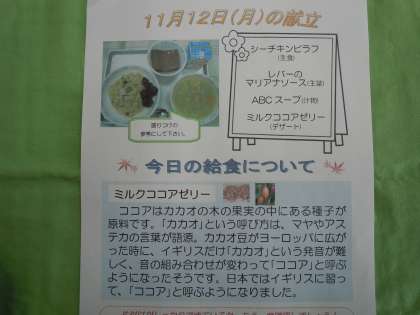 11月12日(月)の献立
シーチキンピラフ
(主食)
レバーの
マリアナソース(主菜)
ABCスープ(汁物)
ミルクココアゼリー
(デザート)
盛りつけの
参考にして下さい。
今日の給食について
ミルクココアゼリー
ココアはカカオの木の果実の中にある種子が
原料です。「カカオ」という呼び方は、マヤやアス
テカの言葉が語源。カカオ豆がヨーロッパに広がっ
た時に、イギリスだけ「カカオ」という発音が難
しく、音の組み合わせが変わって「ココア」と呼ぶ
ようになったそうです。日本ではイギリスに習っ
て、「ココア」と呼ぶようになりました。